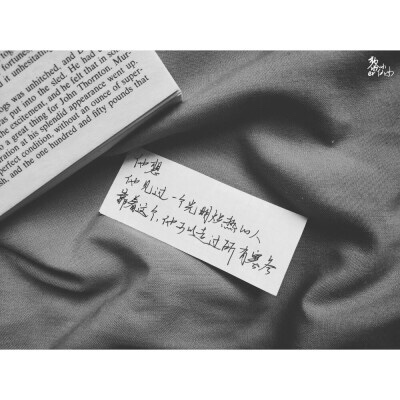 fortunes
it unhesitatin
ogs was unhitched, and
as put into the sled. He had
the excitement, and he felt that in so
o a great thing for John Thornton. Mur-
ration at his splendid appearance went up.
perfect condition, without an ounce of super-
sh, and the one hundred and fifty pounds that
他想
他见过一个光明炽热的人
靠着这个,他可以走过所有寒冬